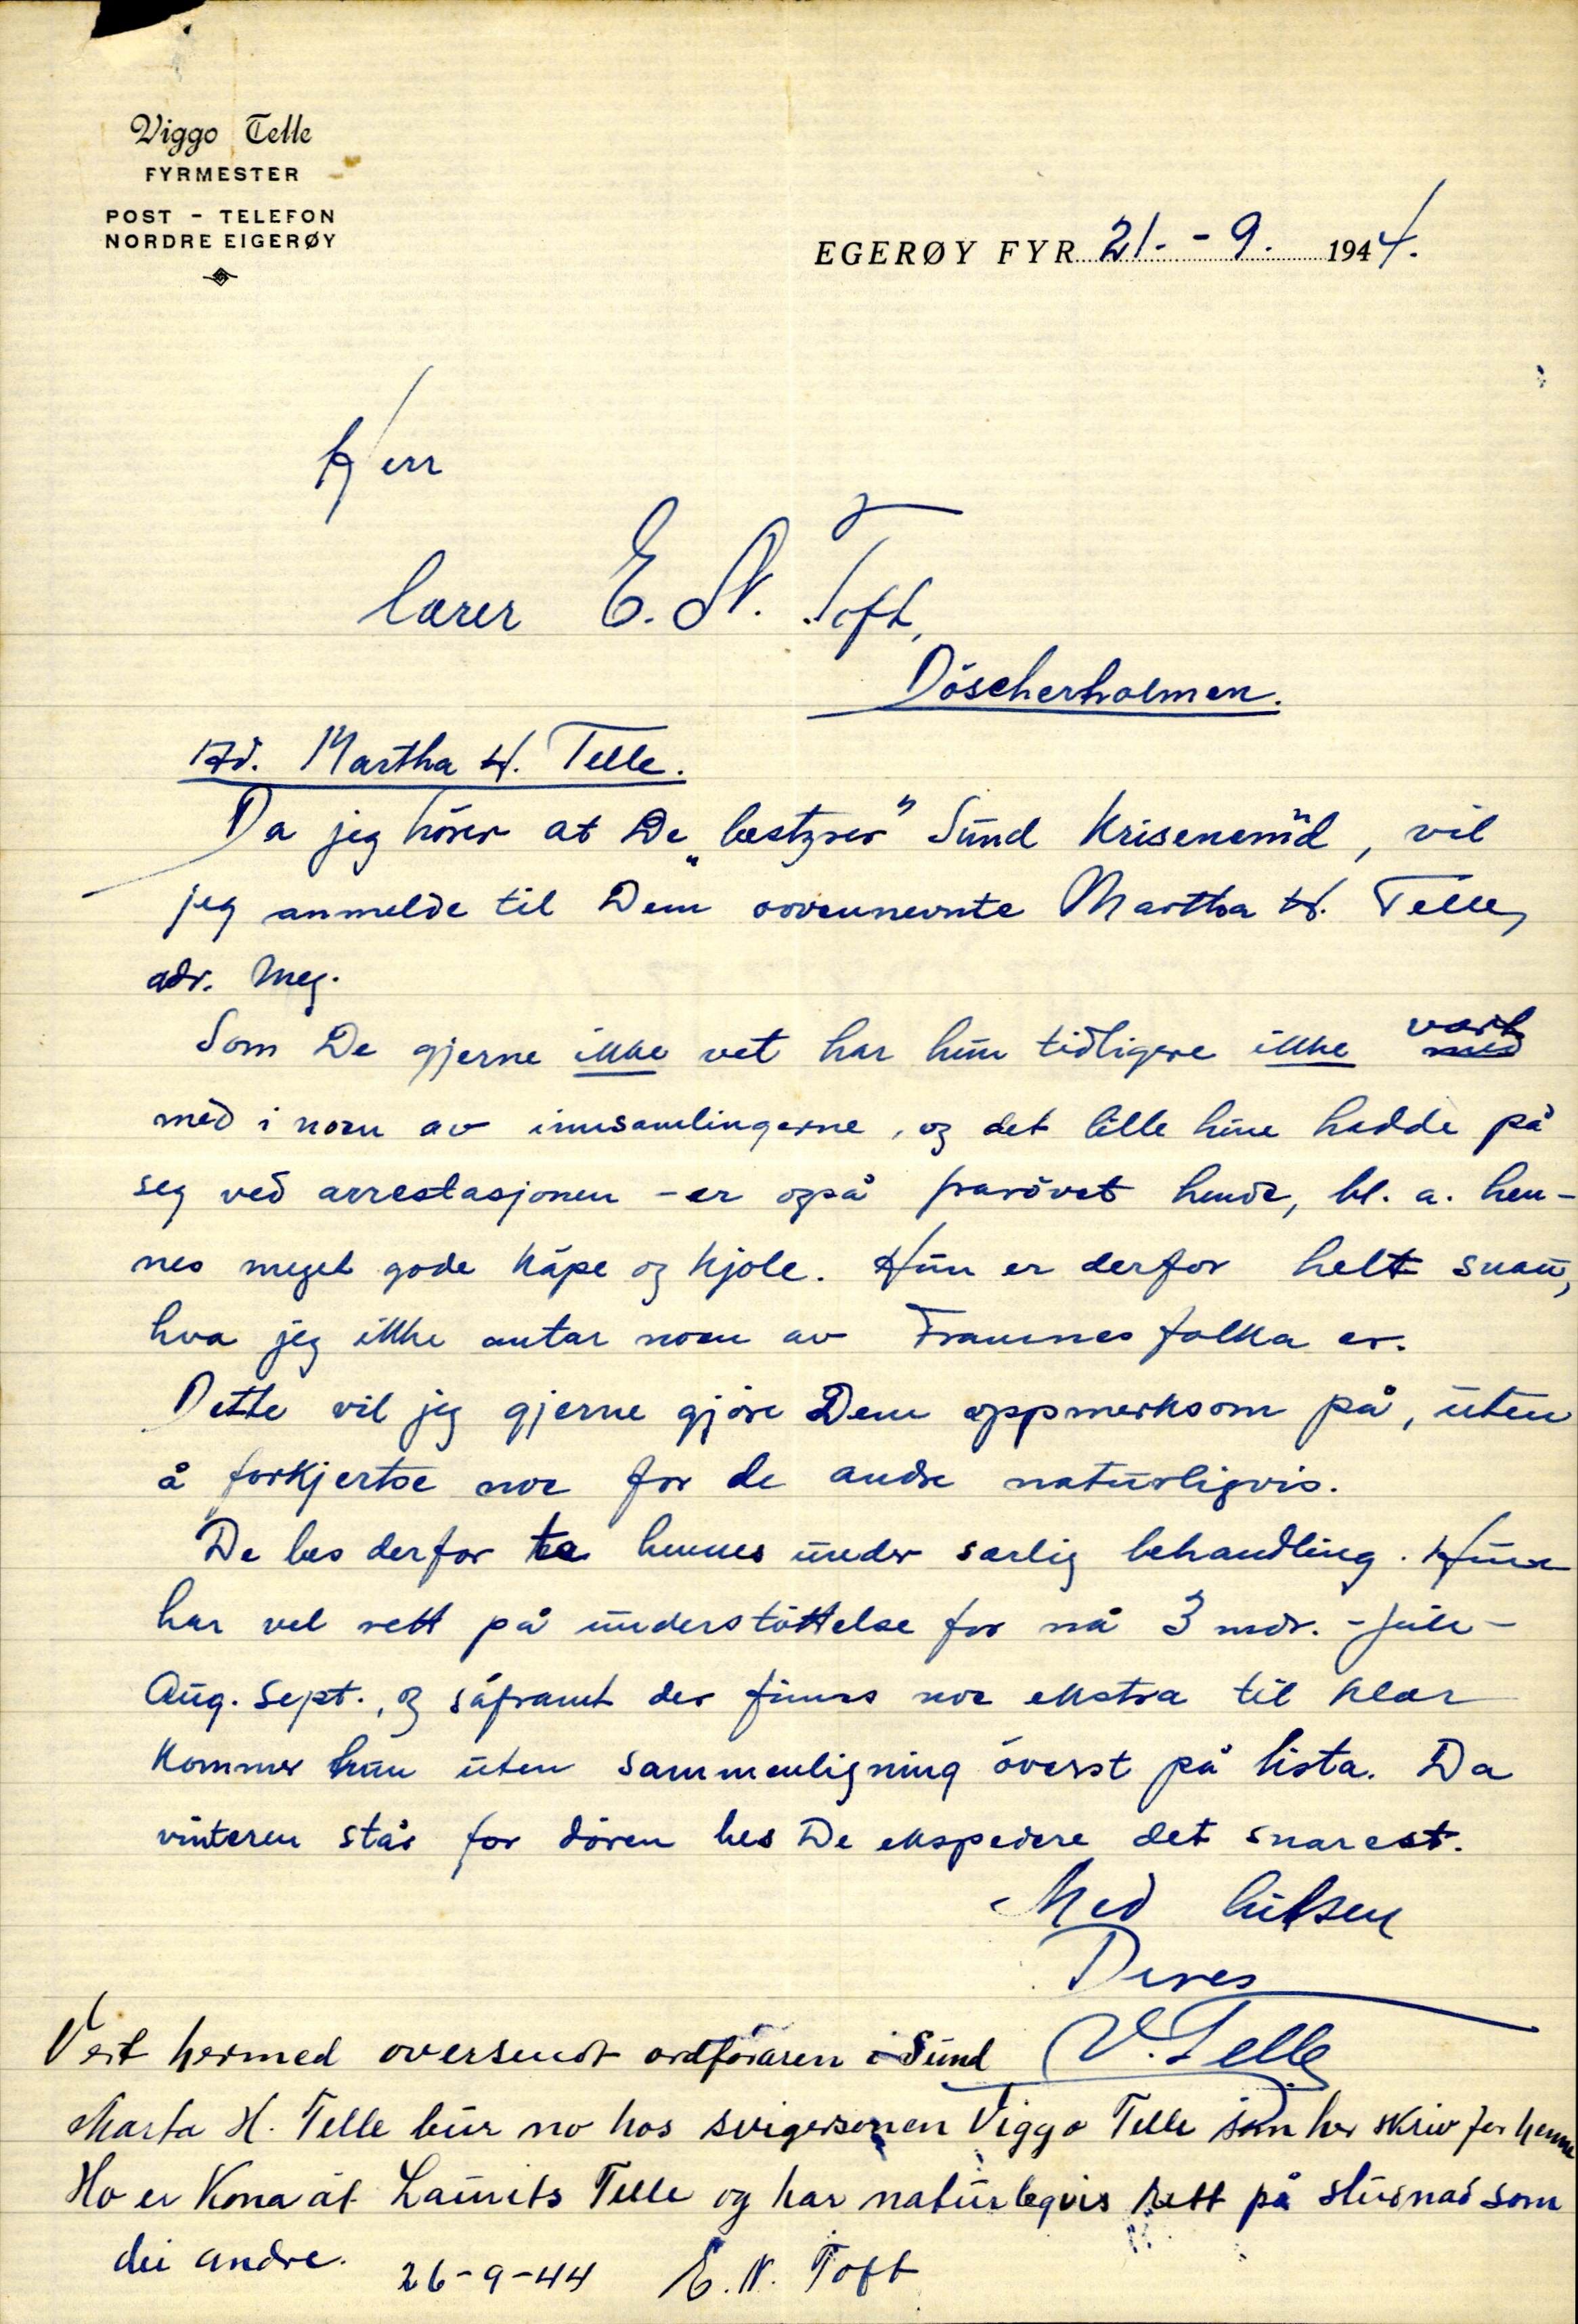 Viggo Telle
FYRMESTER
POST - TELEFON
NORDRE EIGERØY
EGERØY FYR 21. - 9. 1944.
Herr
lærer E. N. Toft,
Döscherholmen.
Ad. Martha H. Telle.
Da jeg hörer at De „bestyrer" Sund Krisenemd, vil
jeg anmelde til Dem ovennevnte Martha H. Telle,
adr. meg.
Som De gjerne ikke vet har hun tidligere ikke vært
med i noen av innsamlingerne, og det lille hun hadde på
seg ved arrestasjonen - er også frarövet hende, bl. a. hen-
nes meget gode kåpe og kjole. Hun er derfor helt snau,
hva jeg ikke antar noen av Framnes folka er.
Dette vil jeg gjerne gjöre Dem oppmerksom på, uten
å forkjertse noe for de andre naturligvis.
De bes derfor ta hennes under særlig behandling. Hun
har vel rett på understöttelse for nå 3 mdr. - Juli -
Aug. Sept., og såframt der finnes noe ekstra til klær
kommer hun uten sammenligning överst på lista. Da
vinteren står for dören bes De ekspedere det snarest.
Med hilsen
Deres
V. Telle
Vert hermed oversendt ordföraren i Sund
Marta H. Telle bur no hos svigersonen Viggo Telle som her skriv for henne
Ho er Kona åt Laurits Telle og har naturlegvis rett på stusnad som
dei andre. 26-9-44 E. N. Toft